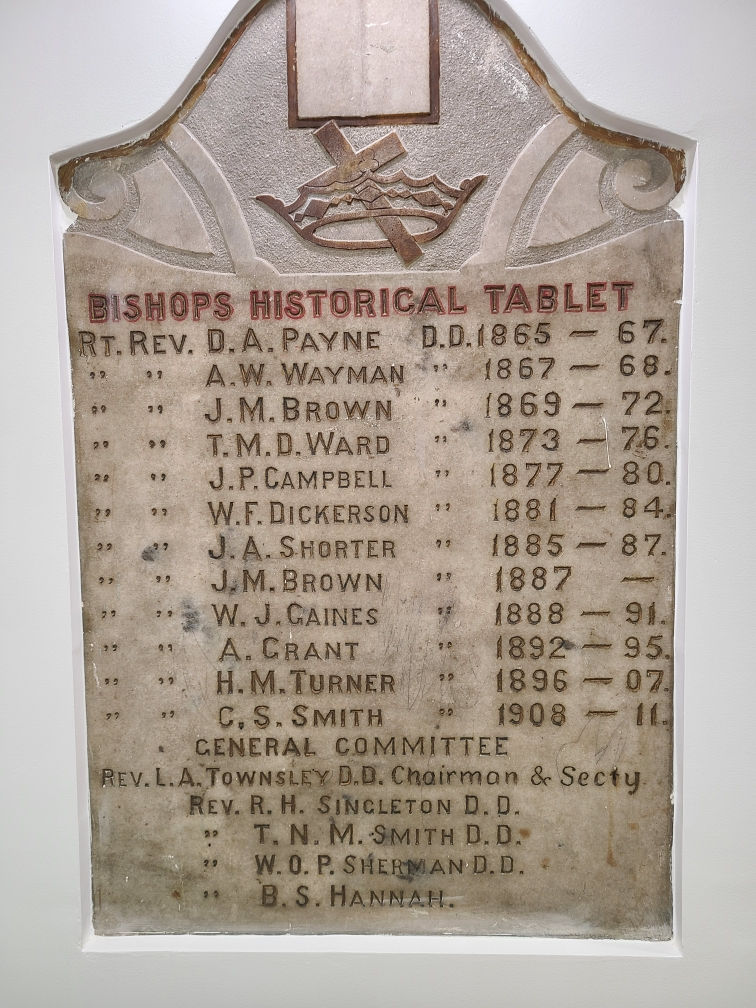 BISHOPS HISTORICAL TABLET
RT. REV. D. A. PAYNE D.D. 1865 – 67.
" " A. W. WAYMAN " 1867 – 68.
" " J. M. BROWN " 1869 – 72.
" " T. M. D. WARD " 1873 – 76.
" " J. P. CAMPBELL " 1877 – 80.
" " W. F. DICKERSON " 1881 – 84.
" " J. A. SHORTER " 1885 – 87.
" " J. M. BROWN " 1887 –
" " W. J. GAINES " 1888 – 91.
" " A. GRANT " 1892 – 95.
" " H. M. TURNER " 1896 – 07.
" " C. S. SMITH " 1908 – 11.
GENERAL COMMITTEE
REV. L. A. TOWNSLEY D.D. Chairman & Secty
REV. R. H. SINGLETON D. D.
" T. N. M. SMITH D. D.
" W. O. P. SHERMAN D. D.
" B. S. HANNAH.